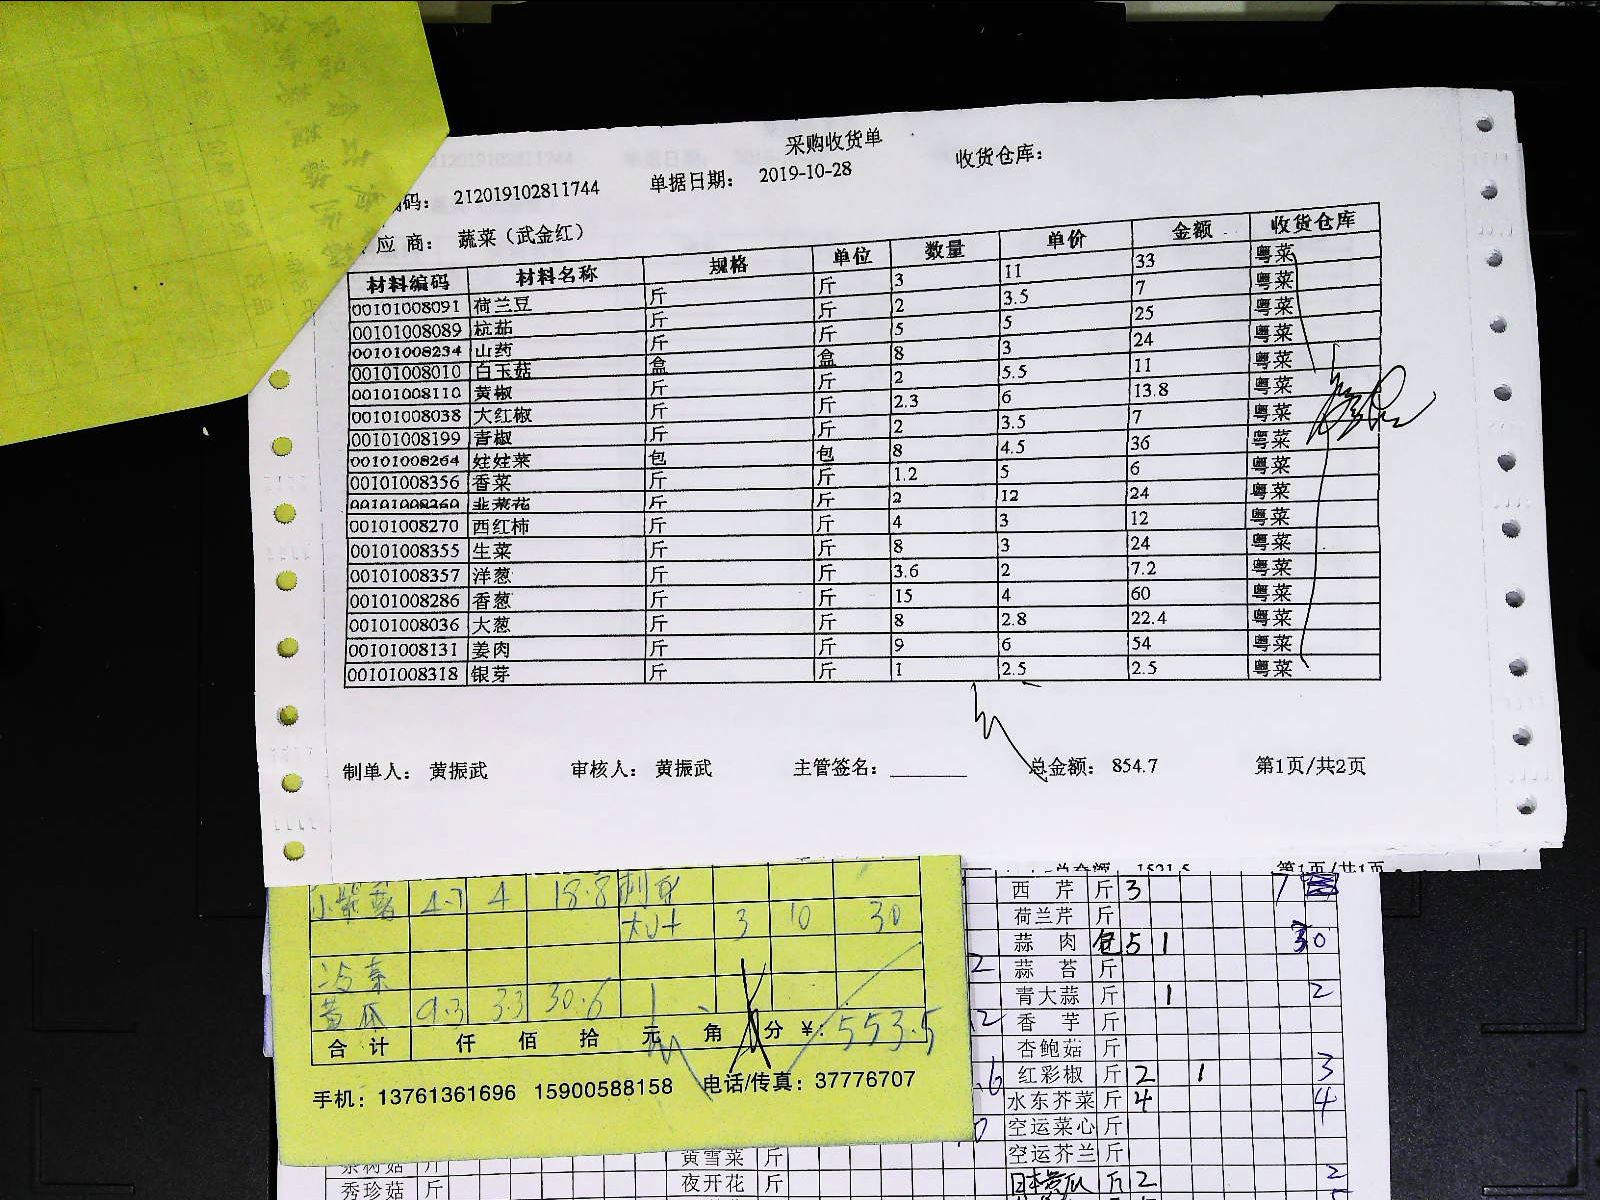 采购收货单
码： 212019102811744 单据日期： 2019-10-28 收货仓库：
应 商： 蔬菜（武金红）
材料编码 材料名称 规格 单位 数量 单价 金额 收货仓库
00101008091 荷兰豆 斤 斤 3 11 33 粤菜
00101008089 杭茄 斤 斤 2 3.5 7 粤菜
00101008234 山药 斤 斤 5 5 25 粤菜
00101008010 白玉菇 盒 盒 8 3 24 粤菜
00101008110 黄椒 斤 斤 2 5.5 11 粤菜
00101008038 大红椒 斤 斤 2.3 6 13.8 粤菜
00101008199 青椒 斤 斤 2 3.5 7 粤菜
00101008264 娃娃菜 包 包 8 4.5 36 粤菜
00101008356 香菜 斤 斤 1.2 5 6 粤菜
00101008260 韭菜花 斤 斤 2 12 24 粤菜
00101008270 西红柿 斤 斤 4 3 12 粤菜
00101008355 生菜 斤 斤 8 3 24 粤菜
00101008357 洋葱 斤 斤 3.6 2 7.2 粤菜
00101008286 香葱 斤 斤 15 4 60 粤菜
00101008036 大葱 斤 斤 8 2.8 22.4 粤菜
00101008131 姜肉 斤 斤 9 6 54 粤菜
00101008318 银芽 斤 斤 1 2.5 2.5 粤菜
制单人： 黄振武 审核人： 黄振武 主管签名： 总金额： 854.7 第1页/共2页
总金额 1521.5 第1页/共1页
4.7 4 18.8
3 10 30
黄瓜 9.3 3.3 30.6
合 计 仟 佰 拾 元 角 分 ¥： 553.5
手机：13761361696 15900588158 电话/传真：37776707
西 芹 斤 3
荷兰芹 斤
蒜 肉 包 5 1 30
蒜 苔 斤
青大蒜 斤 1 2
香 芋 斤
杏鲍菇 斤
红彩椒 斤 2 1 3
水东芥菜 斤 4 4
空运菜心 斤
空运芥兰 斤
日本黄瓜 斤 2 2
茶树菇 斤 黄雪菜 斤
秀珍菇 斤 夜开花 斤